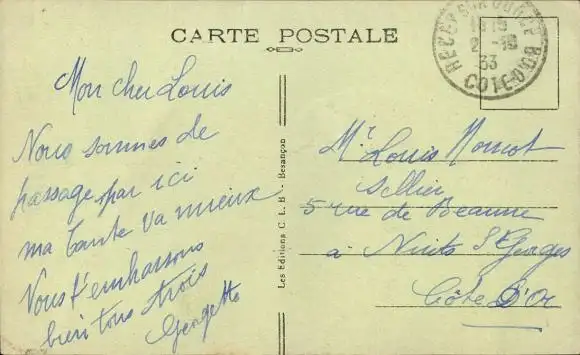 CARTE POSTALE
Mon cher Louis
Nous sommes de
passage par ici
ma tante va mieux
Nous t'embrassons
bien tous trois
Georgette
Les Editions C. L. B. - Besançon
RECEY-SUR-OURCE
1815
2 -10
33
COTE-D'OR
Mr Louis
Sellier
5 rue de Beaune
à Nuits St Georges
Côte D'Or